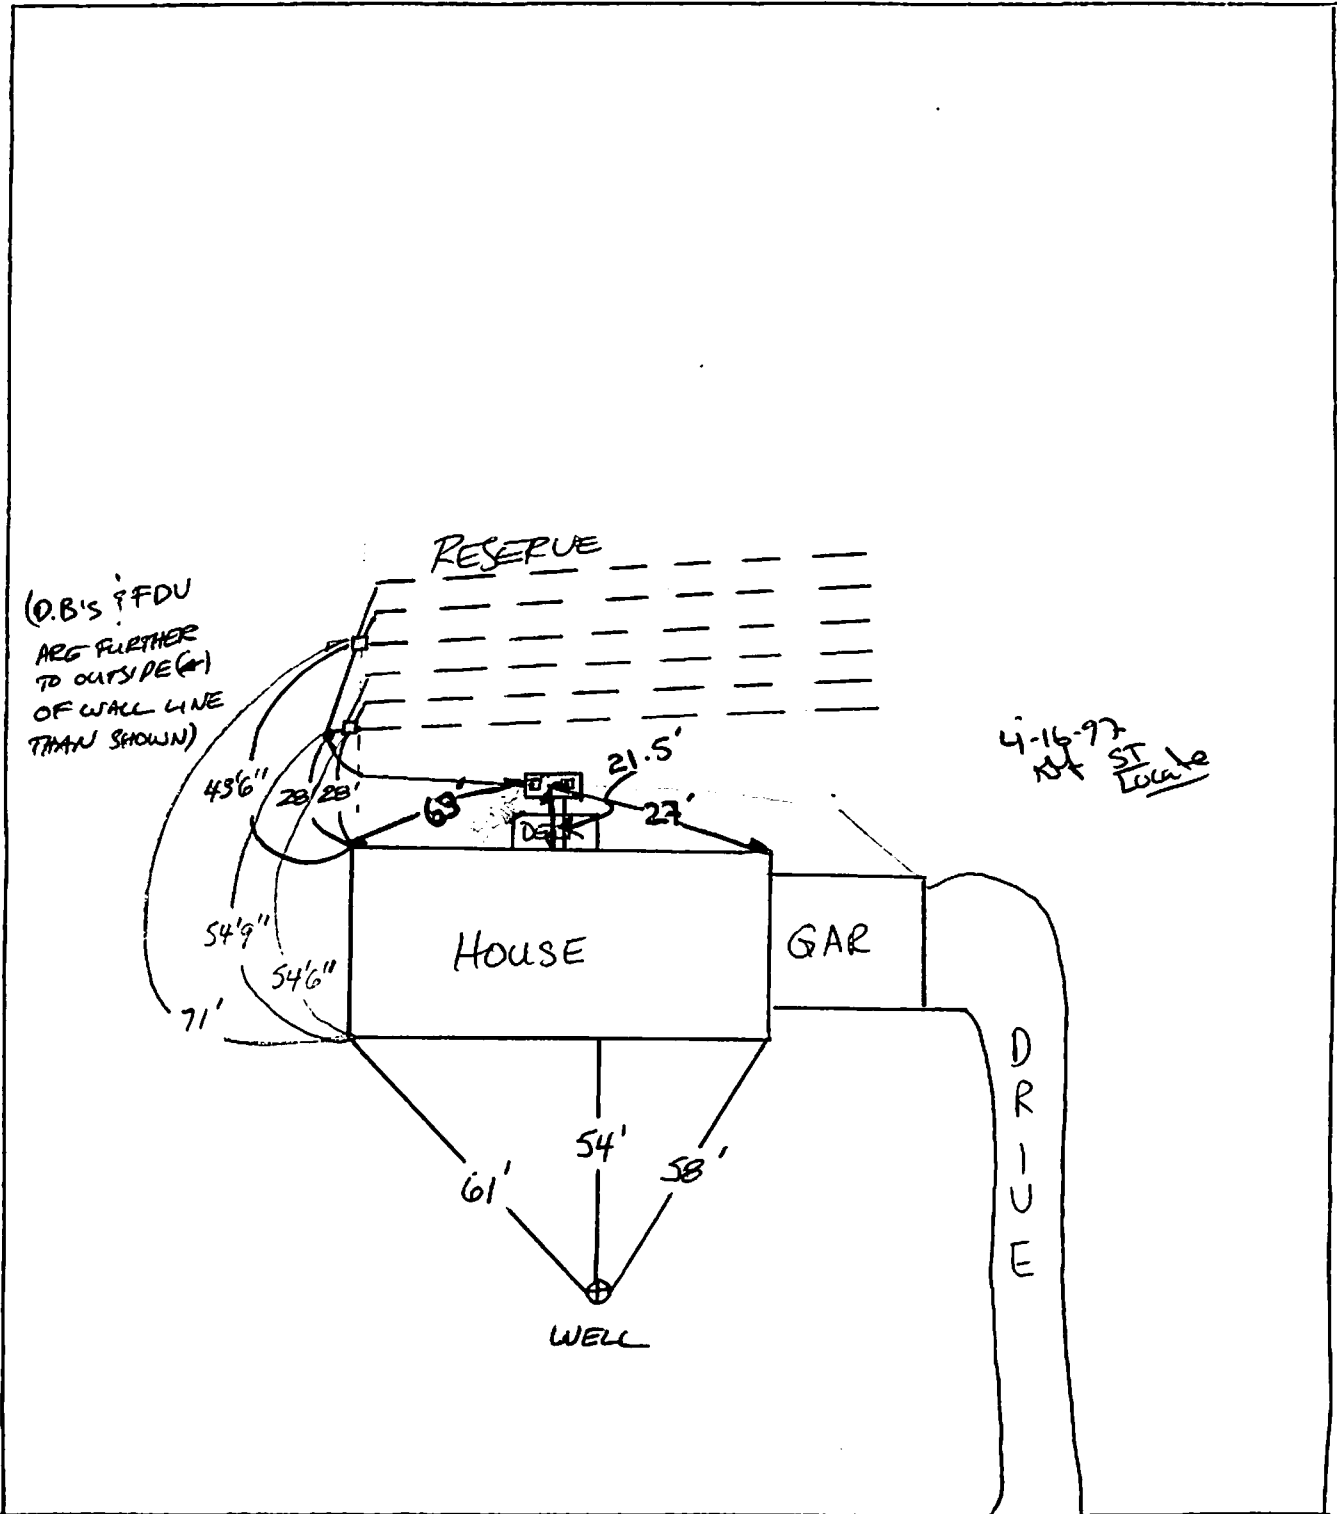 RESERVE
(D.B's & FDV
ARE FURTHER
TO OUTSIDE (←)
OF WALL LINE
THAN SHOWN)
4-16-97
ST
Locate
21.5'
43'6"
28'
28'
63'
27'
DECK
54'9"
HOUSE
GAR
54'6"
71'
DRIVE
54'
58'
61'
WELL